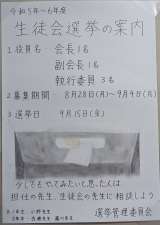 令和5年～6年度
生徒会選挙の案内
1.役員名-会長1名
副会長1名
執行委員3名
2.募集期間-8月28日(月)～9月4日(月)
3.選挙日 9月15日(金)
少しでもやってみたいと思った人は
担任の先生、生徒会の先生に相談しよう
選挙管理委員会